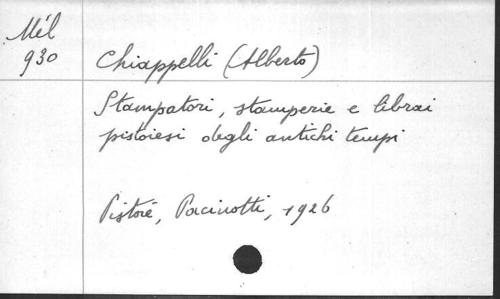 Mél
930
Chiappelli (Alberto)
Stampatori, stamperie e librai
pistoiesi degli antichi tempi
Pistoie, Pacinotti, 1926